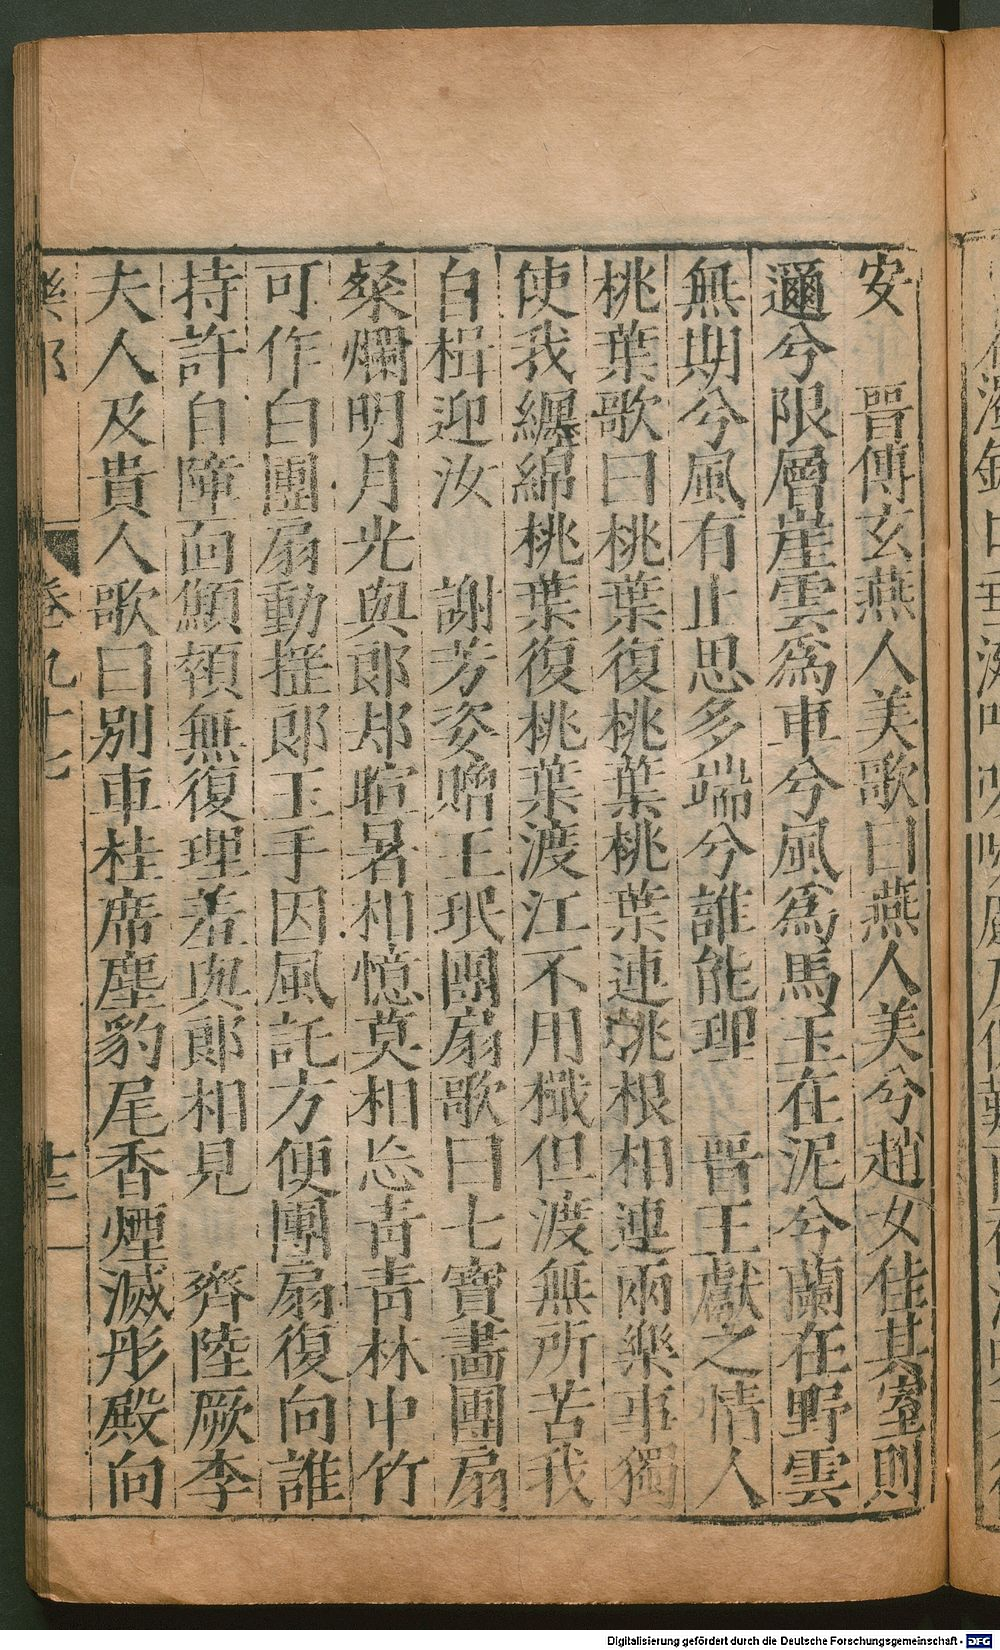 安　晉傅玄燕人美歌曰燕人美兮趙女佳其室則
邇兮限層崖雲爲車兮風爲馬玉在泥兮蘭在野雲
無期兮風有止思多端兮誰能理　晉王獻之情人
桃葉歌曰桃葉復桃葉桃葉連桃根相連兩樂事獨
使我纏綿桃葉復桃葉渡江不用檝但渡無所苦我
自楫迎汝　謝芳姿贈王珉團扇歌曰七寶畵團扇
粲爛明月光與郎却暄暑相憶莫相忘靑靑林中竹
可作白團扇動揺郎玉手因風託方便團扇復向誰
持許自障面顦顇無復理羞與郎相見　齊陸厥李
夫人及貴人歌曰別車桂席塵豹尾香煙滅彤殿向
樂部　卷九十七　廿三
Digitalisierung gefördert durch die Deutsche Forschungsgemeinschaft - DFG